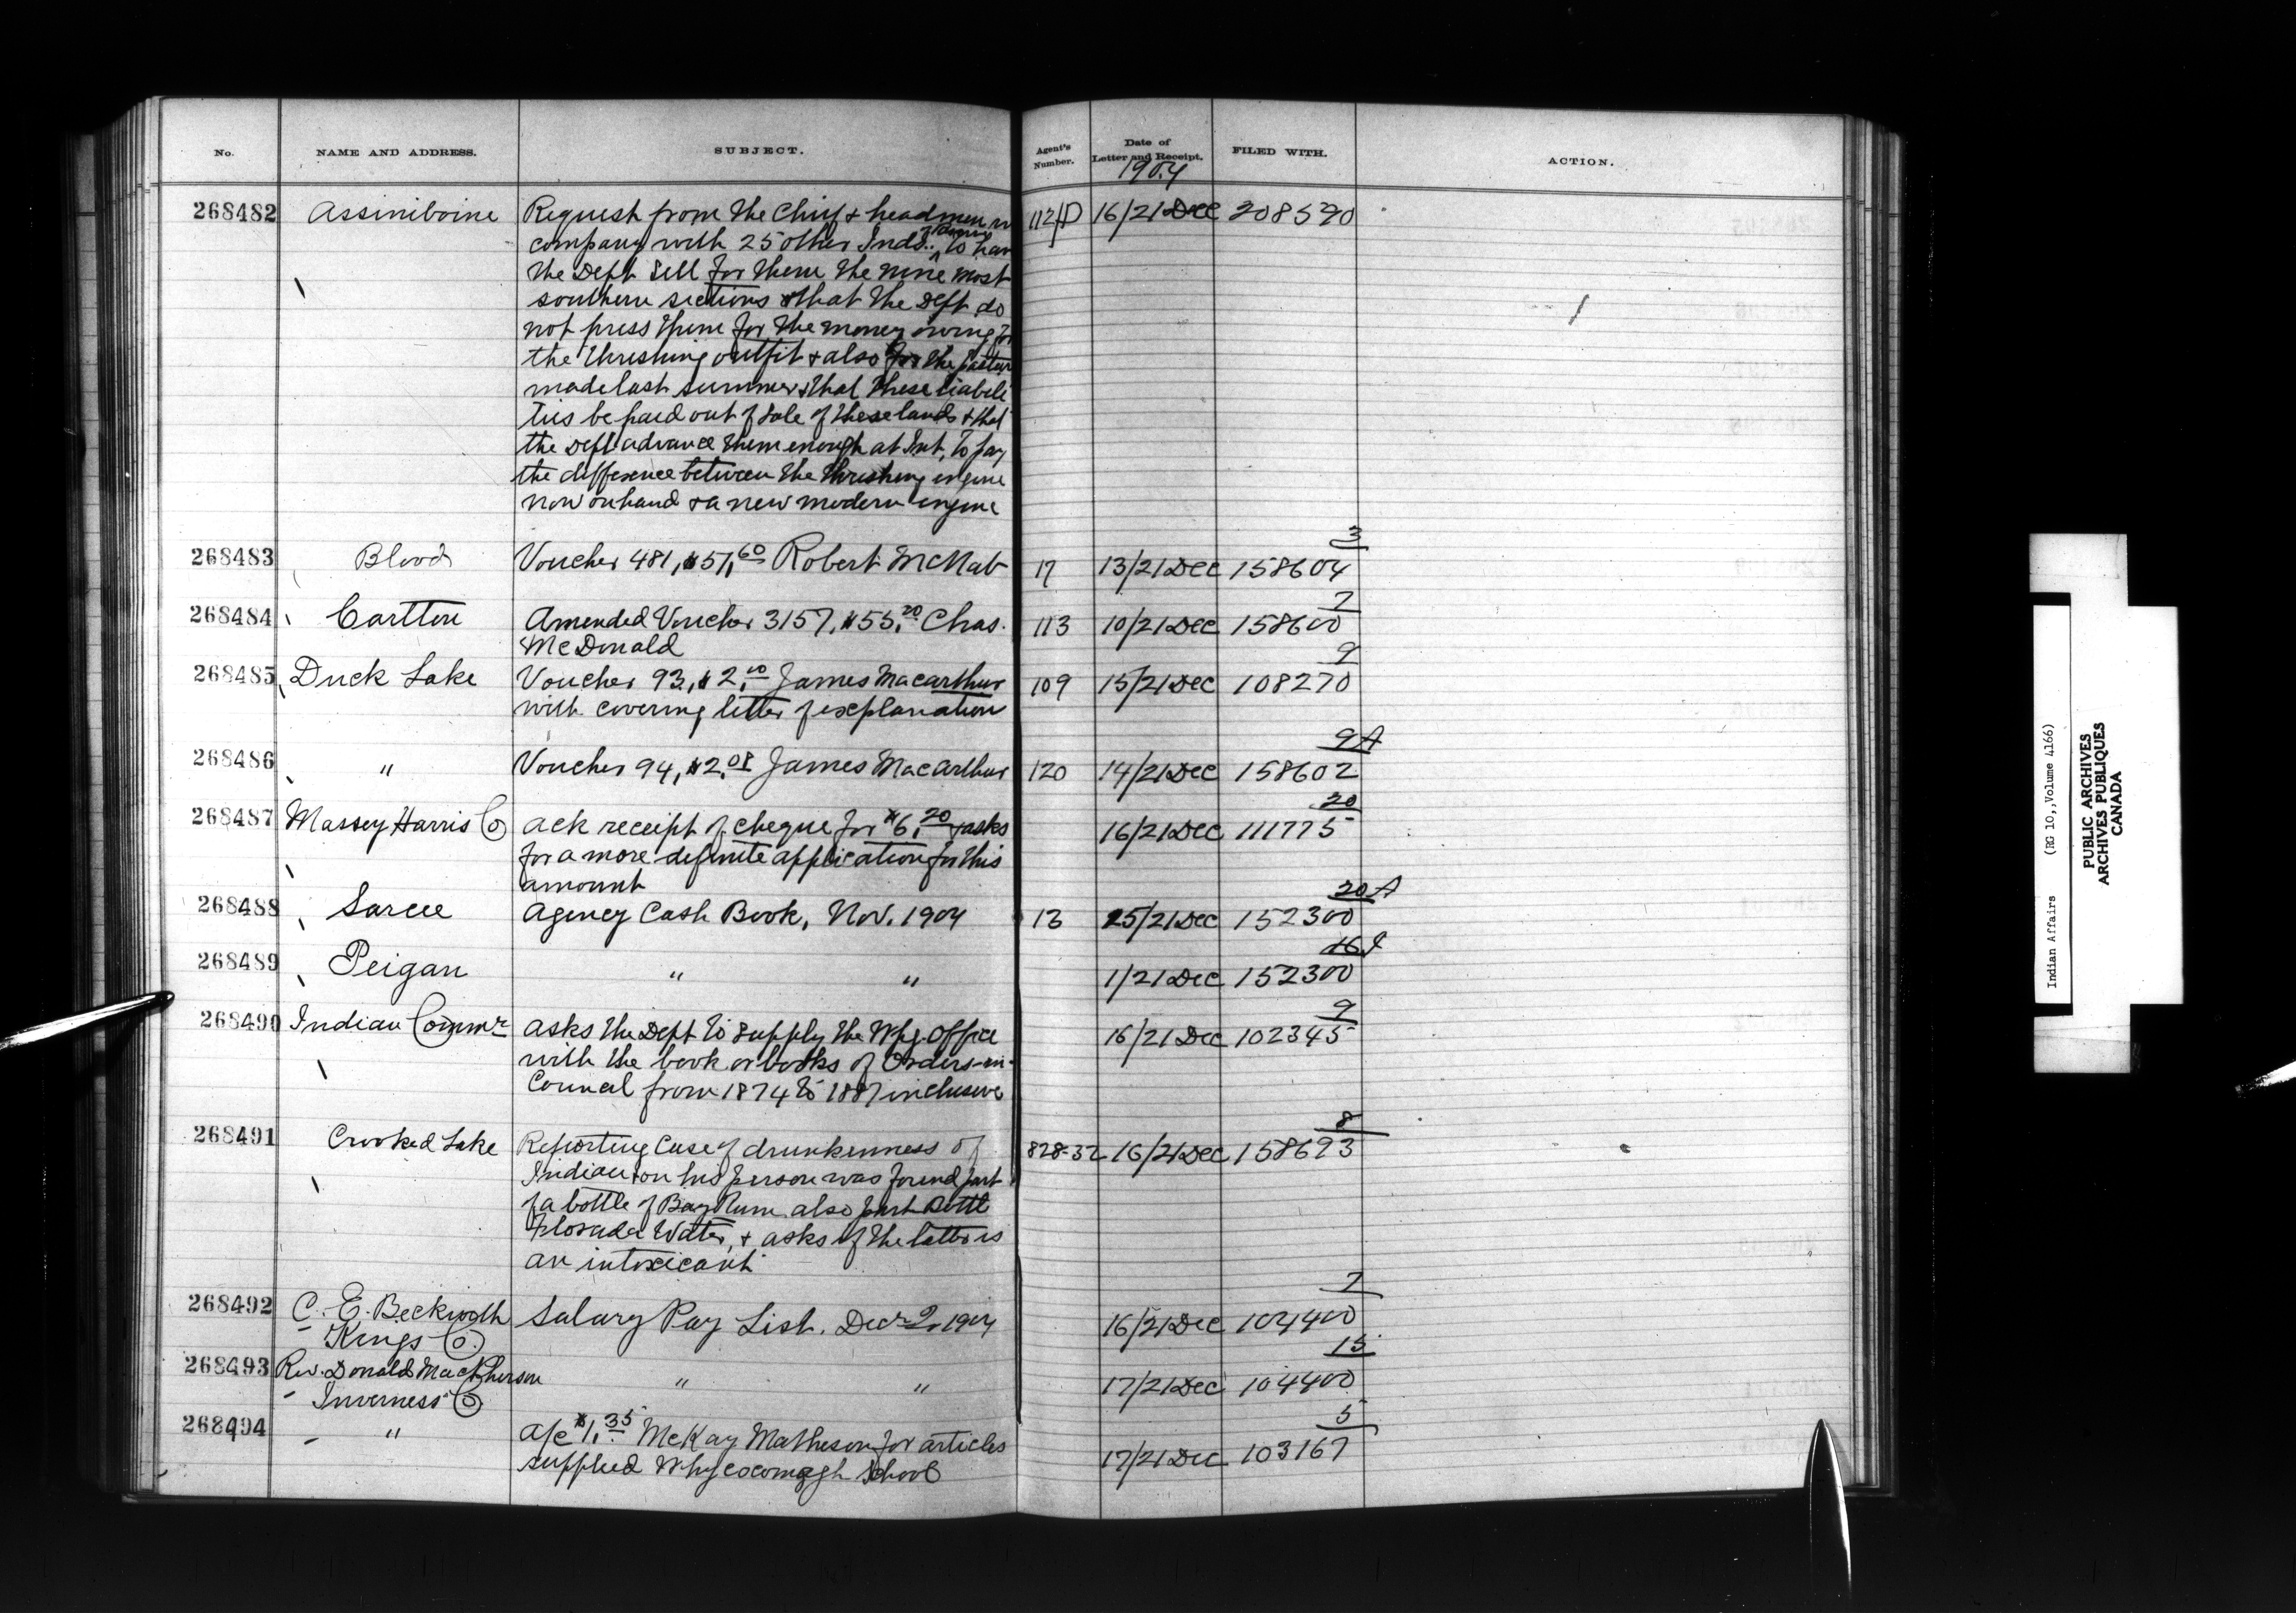 No.
NAME AND ADDRESS.
SUBJECT.
Agent's Number.
Date of Letter and Receipt.
1904
FILED WITH.
ACTION.
268482 Assiniboine Request from the Chief & headmen in 112/P 16/21 Dec 208590
company with 25 other Inds. to have
the Dept sell for them the nine most
southern sections & that the Dept do
not press them for the money owing for
the threshing outfit & also for the pasture
made last summer & that these liabili
ties be paid out of sale of these lands & that
the Dept advance them enough at Int. to pay
the difference between the threshing engine
now on hand & a new modern engine
3
268483 Blood Voucher 481, $51.60 Robert McNab 17 13/21 Dec 158604
7
268484 Carlton Amended Voucher 3157, $55.20 Chas. 113 10/21 Dec 158600
McDonald
9
268485 Duck Lake Voucher 93, $2.10 James Macarthur 109 15/21 Dec 108270
with covering letter of explanation
9A
268486 " Voucher 94, $2.08 James Macarthur 120 14/21 Dec 158602
20
268487 Massey Harris Co Ack receipt of cheque for $6.20 & asks 16/21 Dec 111775
for a more definite application for this
amount
20A
268488 Sarcee Agency Cash Book, Nov. 1904 13 15/21 Dec 152300
16
268489 Peigan " " 1/21 Dec 152300
9
268490 Indian Commr Asks the Dept to supply the Wpg. Office 16/21 Dec 102345
with the book or books of Orders-in-
Council from 1874 to 1887 inclusive
8
268491 Crooked Lake Reporting Case of drunkenness of 828-32 16/21 Dec 158693
Indian & on his person was found part
of a bottle of Bay Rum also part Bottle
Florada Water, & asks if the latter is
an intoxicant
7
268492 C. E. Beckwith Salary Pay List. Decr 2, 1904 16/21 Dec 104400
Kings Co.
15
268493 Rev. Donald MacPherson " " 17/21 Dec 104400
Inverness Co
5
268494 " A/c $1.35 McKay Matheson for articles 17/21 Dec 103167
supplied Whycocomagh School
Indian Affairs (RG 10, Volume 4166)
PUBLIC ARCHIVES
ARCHIVES PUBLIQUES
CANADA